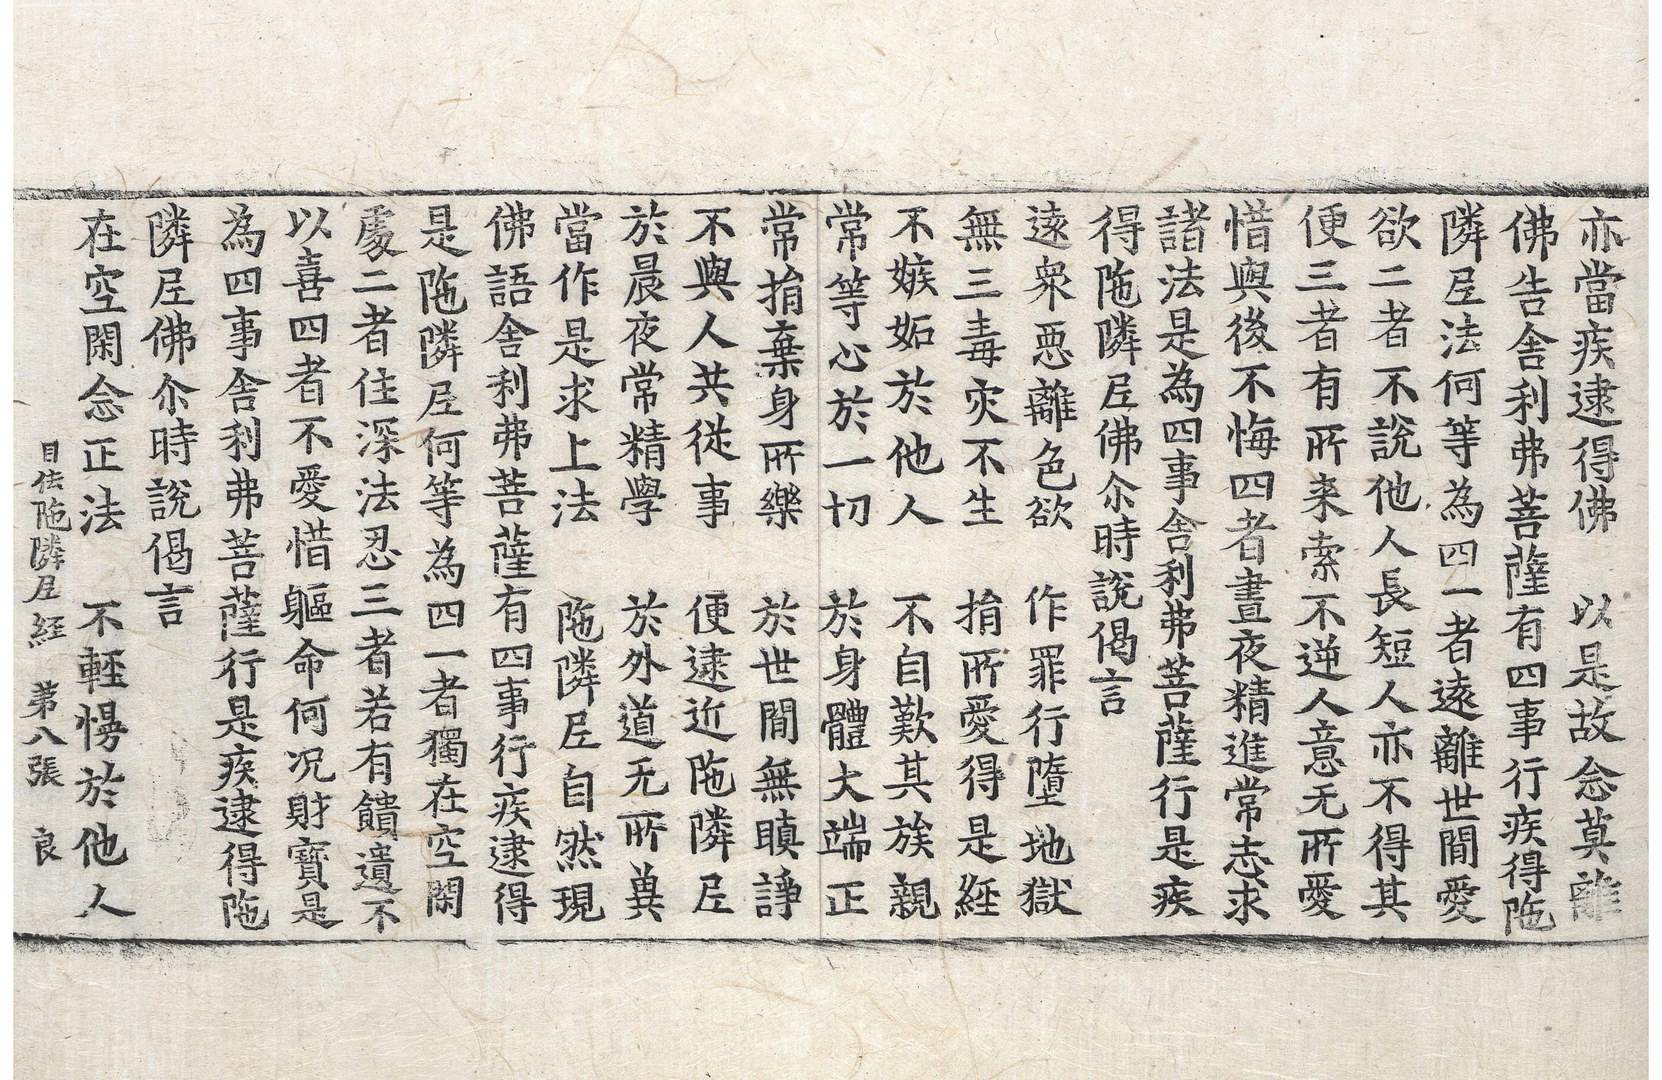 亦當疾逮得佛　以是故念莫離
佛告舍利弗菩薩有四事行疾得陁
隣𡰱法何等為四一者遠離世間愛
欲二者不說他人長短人亦不得其
便三者有所来索不逆人意无所愛
惜與後不悔四者晝夜精進常志求
諸法是為四事舍利弗菩薩行是疾
得陁隣𡰱佛尒時說偈言
遠衆惡離色欲　作罪行墮地獄
無三毒灾不生　捐所愛得是經
不嫉妬於他人　不自歎其族親
常等心於一切　於身體大端正
常捐棄身所樂　於世間無瞋諍
不與人共從事　便逮近陁隣𡰱
於晨夜常精學　於外道无所兾
當作是求上法　陁隣𡰱自然現
佛語舍利弗菩薩有四事行疾逮得
是陁隣𡰱何等為四一者獨在空閑
處二者住深法忍三者若有饋遺不
以喜四者不愛惜軀命何况財寶是
為四事舍利弗菩薩行是疾逮得陁
隣𡰱佛尒時說偈言
在空閑念正法　不輕慢於他人
目佉陁隣𡰱經　第八張　良